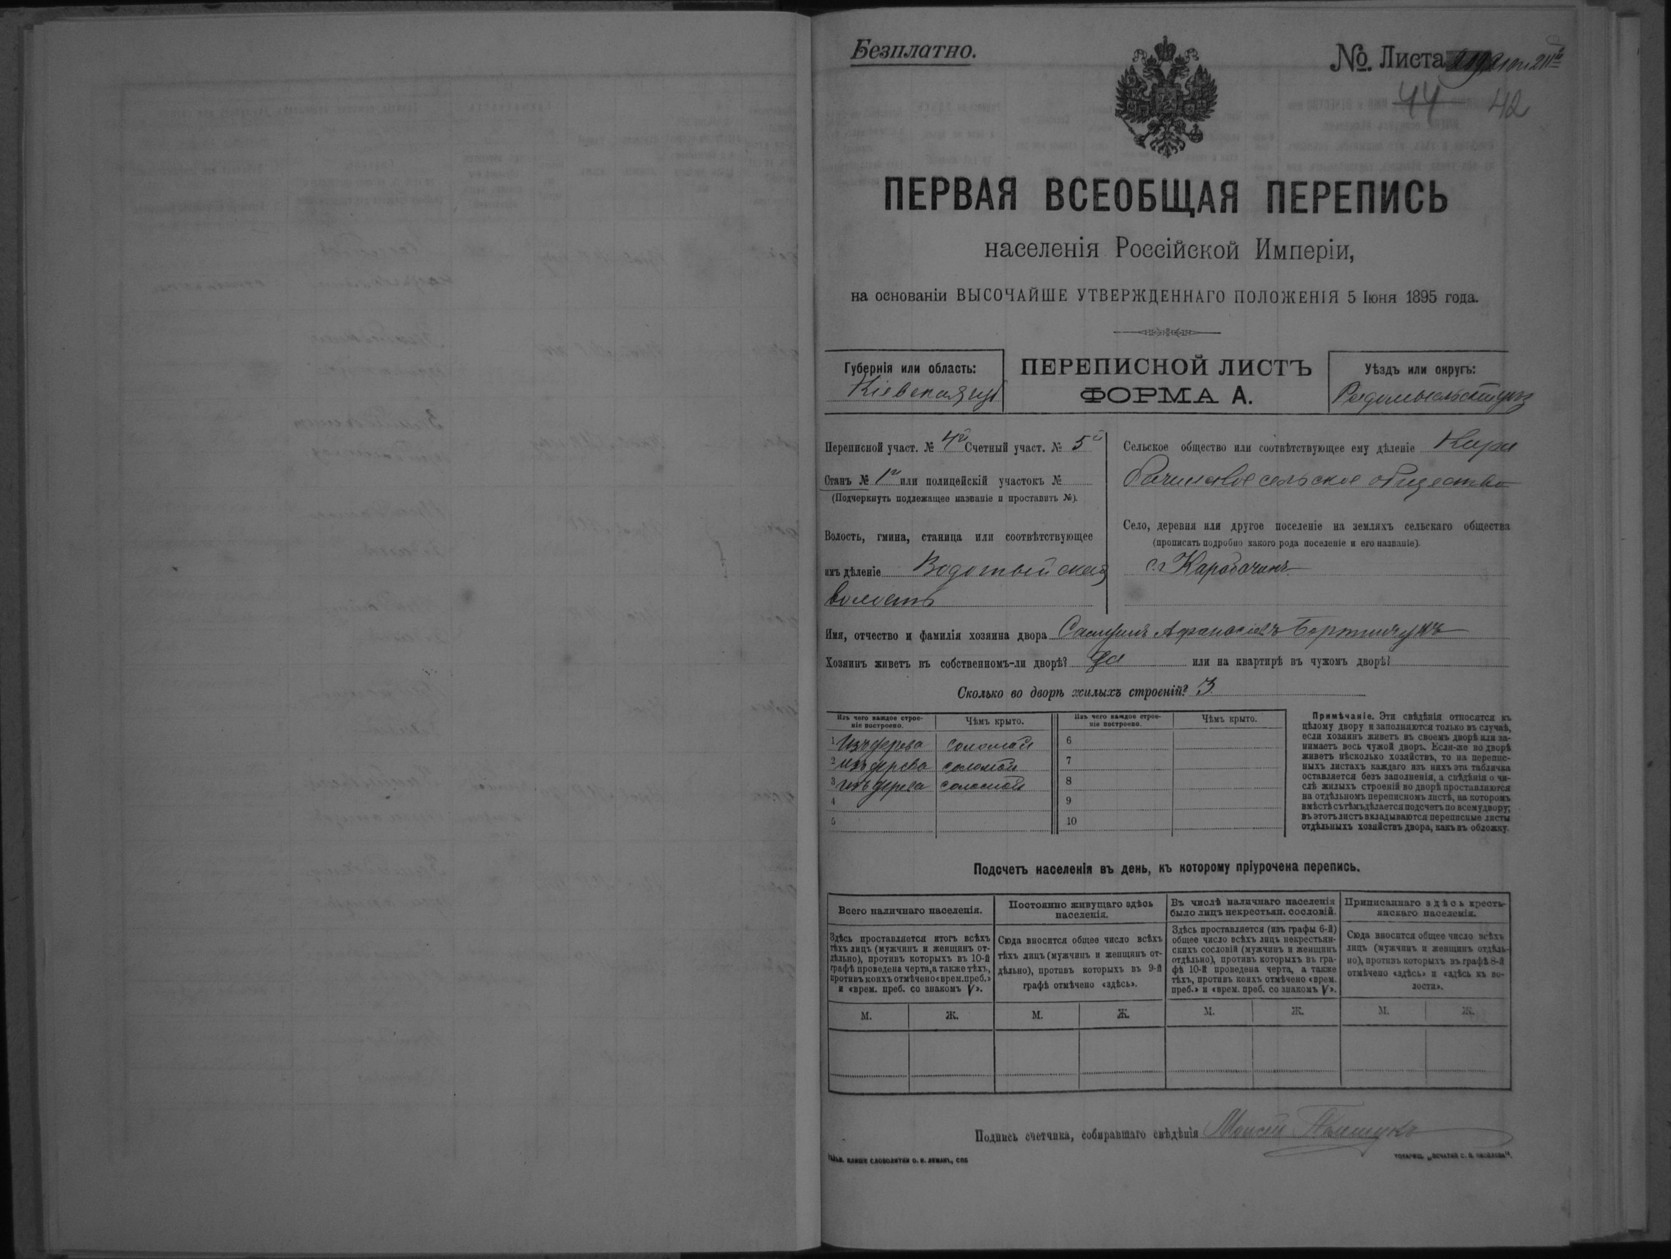 Безплатно.
№. Листа
44 42
ПЕРВАЯ ВСЕОБЩАЯ ПЕРЕПИСЬ
населенія Россійской Имперіи,
на основаніи ВЫСОЧАЙШЕ УТВЕРЖДЕННАГО ПОЛОЖЕНІЯ 5 Іюня 1895 года.
Губернія или область:
Кіевская
ПЕРЕПИСНОЙ ЛИСТЪ
ФОРМА А.
Уѣздъ или округъ:
Переписной участ. № 4й Счетный участ. № 5й
Станъ № 1й или полицейскій участокъ №
(Подчеркнуть подлежащее названіе и проставить №).
Волость, гмина, станица или соотвѣтствующее
имъ дѣленіе Водотыйская
волость
Сельское общество или соотвѣтствующее ему дѣленіе Кара
бачинское сельское общество
Село, деревня или другое поселеніе на земляхъ сельскаго общества
(прописать подробно какого рода поселеніе и его названіе).
с. Карабачинъ
Имя, отчество и фамилія хозяина двора
Хозяинъ живетъ въ собственномъ-ли дворѣ? да или на квартирѣ въ чужомъ дворѣ?
Сколько во дворѣ жилыхъ строеній? 3
Изъ чего каждое строе-
ніе построено.
Чѣмъ крыто.
Изъ чего каждое строе-
ніе построено.
Чѣмъ крыто.
1 изъ дерева соломой 6
2 изъ дерева соломой 7
3 изъ дерева соломой 8
4 9
5 10
Примѣчаніе. Эти свѣдѣнія относятся къ
цѣлому двору и заполняются только въ случаѣ,
если хозяинъ живетъ въ своемъ дворѣ или за-
нимаетъ весь чужой дворъ. Если-же во дворѣ
живетъ нѣсколько хозяйствъ, то на перепис-
ныхъ листахъ каждаго изъ нихъ эта табличка
оставляется безъ заполненія, а свѣдѣнія о чи-
слѣ жилыхъ строеній во дворѣ проставляются
на отдѣльномъ переписномъ листѣ, на которомъ
вмѣстѣ съ тѣмъ дѣлается подсчетъ по всему двору;
въ этотъ листъ вкладываются переписные листы
отдѣльныхъ хозяйствъ двора, какъ въ обложку.
Подсчетъ населенія въ день, къ которому пріурочена перепись.
Всего наличнаго населенія.
Здѣсь проставляется итогъ всѣхъ
тѣхъ лицъ (мужчинъ и женщинъ от-
дѣльно), противъ которыхъ въ 10-й
графѣ проведена черта, а также тѣхъ,
противъ коихъ отмѣчено «врем. преб.»
и «врем. преб. со знакомъ V».
Постоянно живущаго здѣсь
населенія.
Сюда вносится общее число всѣхъ
тѣхъ лицъ (мужчинъ и женщинъ от-
дѣльно), противъ которыхъ въ 9-й
графѣ отмѣчено «здѣсь».
Въ числѣ наличнаго населенія
было лицъ некрестьян. сословій.
Здѣсь проставляется (изъ графы 6-й)
общее число всѣхъ лицъ некрестьян-
скихъ сословій (мужчинъ и женщинъ
отдѣльно), противъ которыхъ въ гра-
фѣ 10-й проведена черта, а также
тѣхъ, противъ коихъ отмѣчено «врем.
преб.» и «врем. преб. со знакомъ V».
Приписаннаго здѣсь кресть-
янскаго населенія.
Сюда вносится общее число всѣхъ
лицъ (мужчинъ и женщинъ отдѣль-
но), противъ которыхъ въ графѣ 8-й
отмѣчено «здѣсь» и «здѣсь въ во-
лости».
М. Ж. М. Ж. М. Ж. М. Ж.
Подпись счетчика, собиравшаго свѣдѣнія